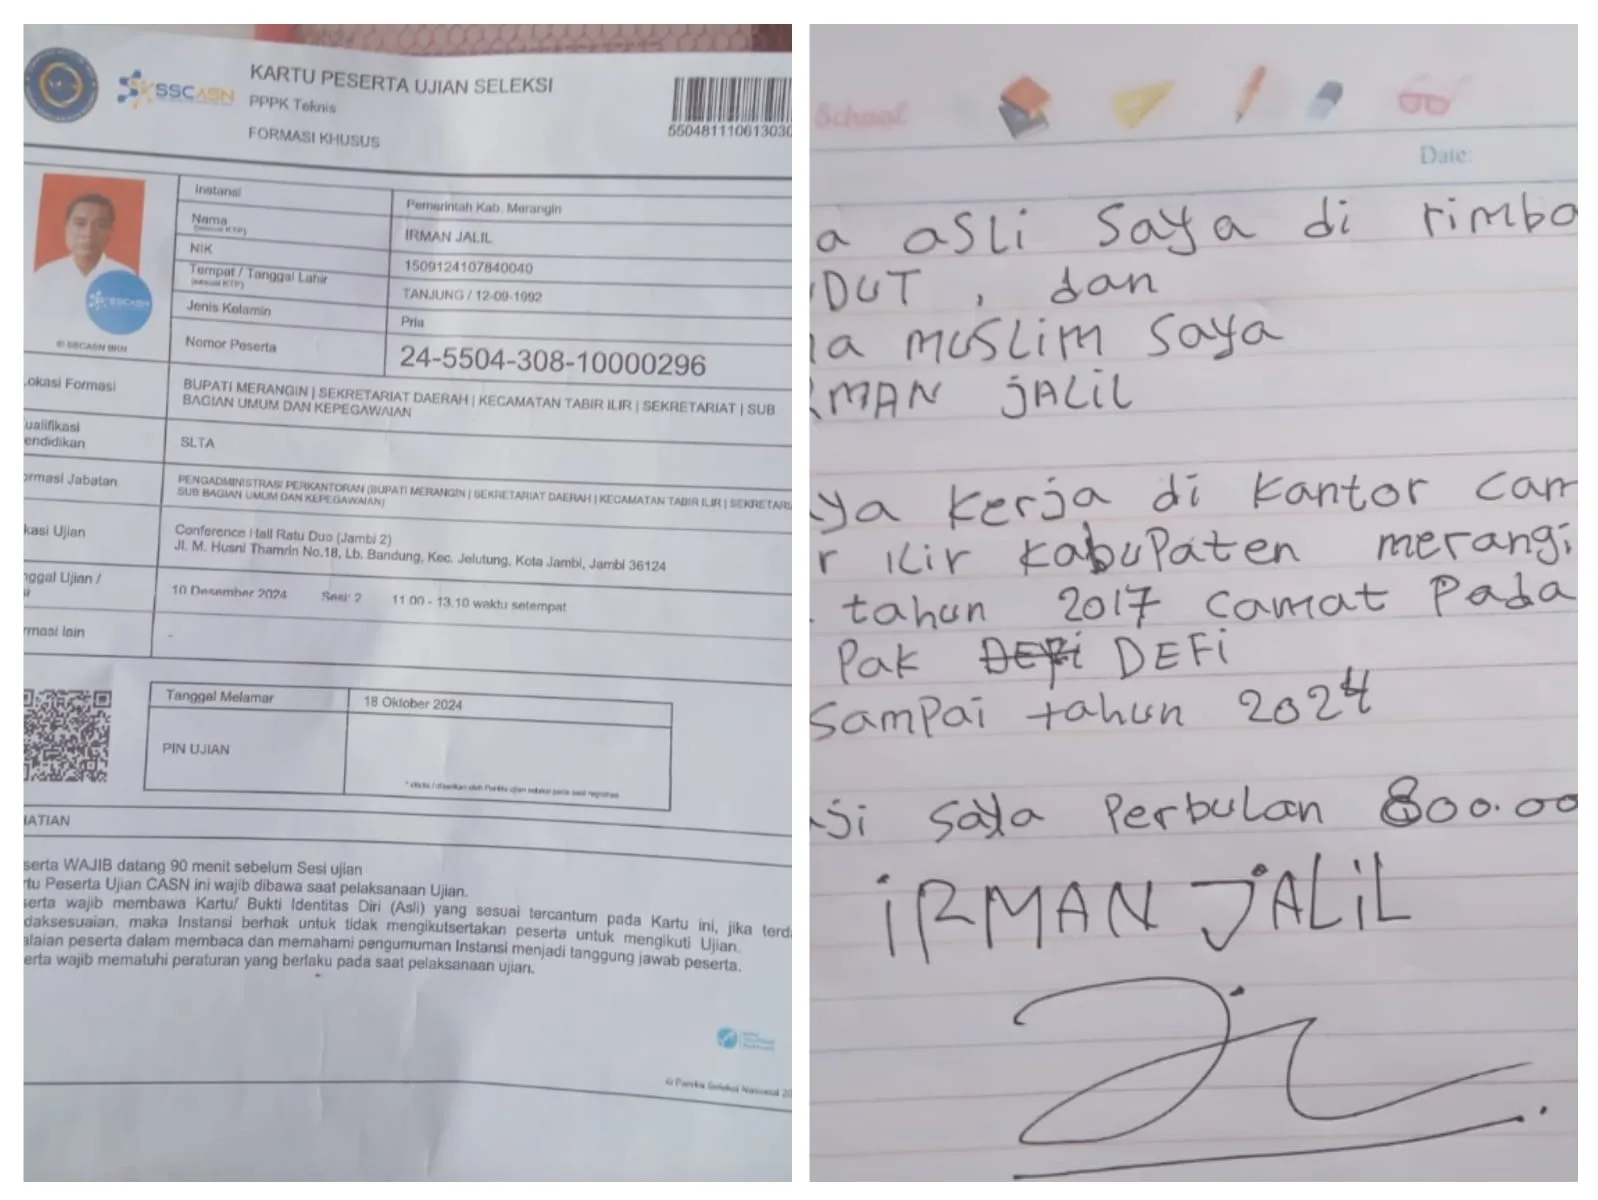 SSCASN
KARTU PESERTA UJIAN SELEKSI
PPPK Teknis
FORMASI KHUSUS
550481110613030
Instansi
Pemerintah Kab. Merangin
Nama
(sesuai KTP)
IRMAN JALIL
NIK
1509124107840040
Tempat / Tanggal Lahir
(sesuai KTP)
TANJUNG / 12-09-1992
Jenis Kelamin
Pria
Nomor Peserta
24-5504-308-10000296
SSCASN
© SSCASN BKN
okasi Formasi
BUPATI MERANGIN | SEKRETARIAT DAERAH | KECAMATAN TABIR ILIR | SEKRETARIAT | SUB
BAGIAN UMUM DAN KEPEGAWAIAN
ualifikasi
endidikan
SLTA
ormasi Jabatan
PENGADMINISTRASI PERKANTORAN (BUPATI MERANGIN | SEKRETARIAT DAERAH | KECAMATAN TABIR ILIR | SEKRETARI
SUB BAGIAN UMUM DAN KEPEGAWAIAN)
kasi Ujian
Conference Hall Ratu Duo (Jambi 2)
Jl. M. Husni Thamrin No.18, Lb. Bandung, Kec. Jelutung, Kota Jambi, Jambi 36124
nggal Ujian /
si
10 Desember 2024 Sesi: 2 11.00 - 13.10 waktu setempat
rmasi lain
-
Tanggal Melamar
18 Oktober 2024
PIN UJIAN
* ditulis / diberikan oleh Panitia ujian seleksi pada saat registrasi
HATIAN
serta WAJIB datang 90 menit sebelum Sesi ujian
rtu Peserta Ujian CASN ini wajib dibawa saat pelaksanaan Ujian.
serta wajib membawa Kartu/ Bukti Identitas Diri (Asli) yang sesuai tercantum pada Kartu ini, jika terda
daksesuaian, maka Instansi berhak untuk tidak mengikutsertakan peserta untuk mengikuti Ujian.
alaian peserta dalam membaca dan memahami pengumuman Instansi menjadi tanggung jawab peserta.
erta wajib mematuhi peraturan yang berlaku pada saat pelaksanaan ujian.
© Panitia Seleksi Nasional 20
School
Date:
a asli saya di rimbo
DUT , dan
a muslim saya
RMAN jALiL
aya kerja di kantor cam
r ilir kabupaten merangi
tahun 2017 camat Pada
Pak DEFi DEFi
Sampai tahun 2024
aji saya Perbulan 800.00
iRMAN JALiL